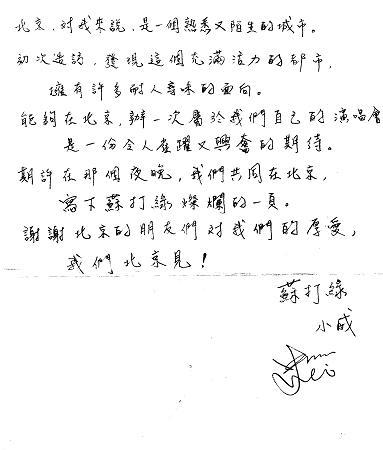 北京，對我來說，是一個熟悉又陌生的城市。
初次造訪，發現這個充滿活力的都市，
擁有許多耐人尋味的面向。
能夠在北京，辦一次屬於我們自己的演唱會
是一份令人雀躍又興奮的期待。
期許在那個夜晚，我們共同在北京，
寫下蘇打綠燦爛的一頁。
謝謝北京的朋友們對我們的厚愛，
我們北京見！
蘇打綠
小威